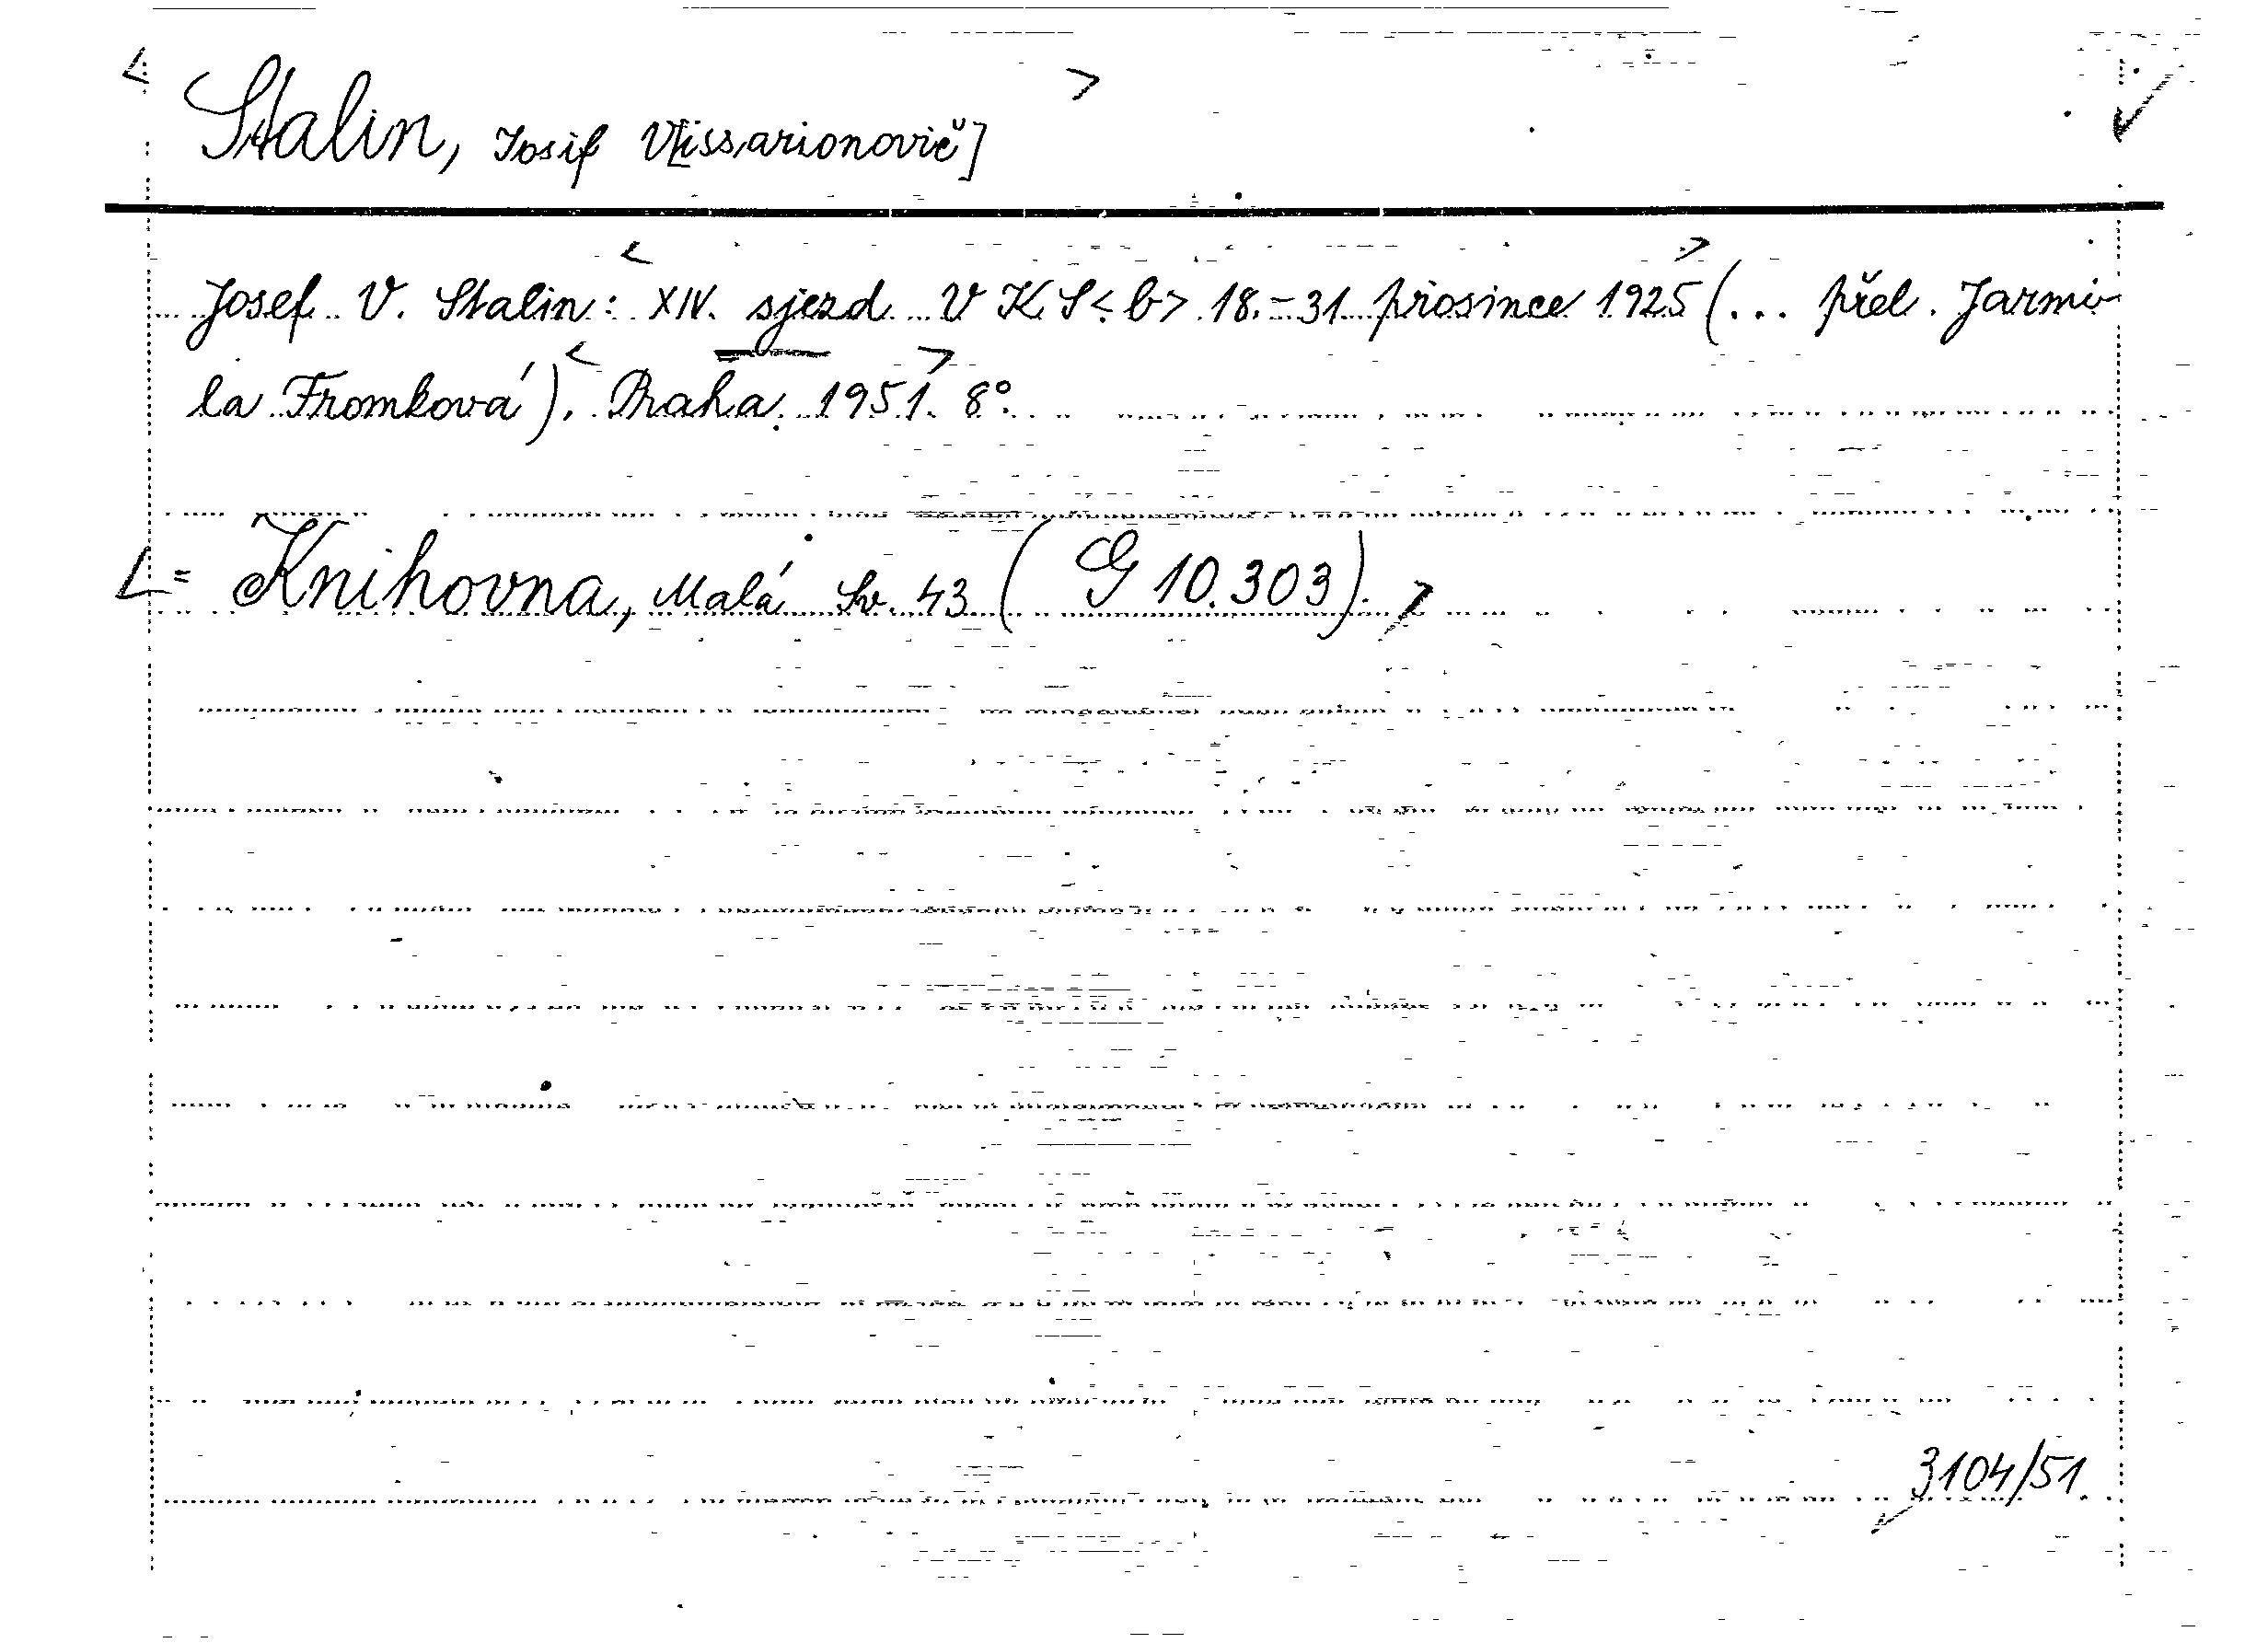 < Stalin, Josif V[issarionovič] >
Josef V. Stalin: < XIV. sjezd VKS<b> 18.-31. prosince 1925 > (... přel. Jarmi-
la Fromková). < Praha 1951. > 8°.
<= Knihovna, Malá Sv. 43 (G 10.303). >
3104/51